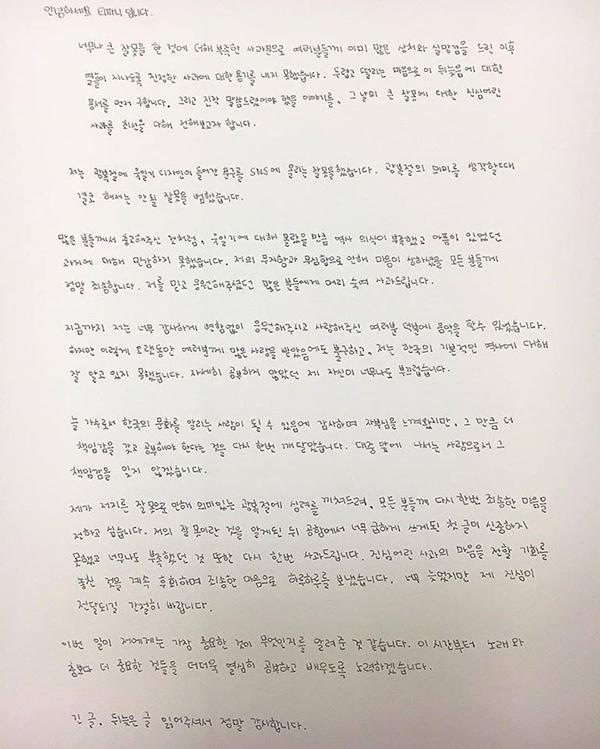 안녕하세요 티파니 입니다.
너무나 큰 잘못을 한 것에 더해 부족한 사과문으로 여러분들께 이미 많은 상처와 실망감을 드린 이후
열흘이 지나도록 진정한 사과에 대한 용기를 내지 못했습니다. 두렵고 떨리는 마음으로 이 뒤늦음에 대한
용서를 먼저 구합니다. 그리고 진작 말씀드렸어야 했을 이야기를, 그날의 큰 잘못에 대한 진심어린
사과를 최선을 다해 전해보고자 합니다.
저는 광복절에 욱일기 디자인이 들어간 문구를 SNS에 올리는 잘못을 했습니다. 광복절의 의미를 생각할때
결코 해서는 안될 잘못을 범했습니다.
많은 분들께서 충고해주신 것처럼, 욱일기에 대해 몰랐을 만큼 역사 의식이 부족했고 아픔이 있었던
과거에 대해 민감하지 못했습니다. 저의 무지함과 무심함으로 인해 마음이 상하셨을 모든 분들께
정말 죄송합니다. 저를 믿고 응원해주셨던 많은 분들에게 머리 숙여 사과드립니다.
지금까지 저는 너무 감사하게 변함없이 응원해주시고 사랑해주신 여러분 덕분에 음악을 할수 있었습니다.
하지만 이렇게 오랫동안 여러분께 많은 사랑을 받았음에도 불구하고, 저는 한국의 기본적인 역사에 대해
잘 알고 있지 못했습니다. 자세히 공부하지 않았던 제 자신이 너무나도 부끄럽습니다.
늘 가수로서 한국의 문화를 알리는 사람이 될 수 있음에 감사하며 자부심을 느껴왔지만, 그 만큼 더
책임감을 갖고 공부해야 한다는 것을 다시 한번 깨달았습니다. 대중 앞에 나서는 사람으로서 그
책임감을 잊지 않겠습니다.
제가 저지른 잘못으로 인해 의미있는 광복절에 심려를 끼쳐드려, 모든 분들께 다시 한번 죄송한 마음을
전하고 싶습니다. 저의 잘못이란 것을 알게된 뒤 공항에서 너무 급하게 쓰게된 첫 글이 신중하지
못했고 너무나도 부족했던 것 또한 다시 한번 사과드립니다. 진심어린 사과의 마음을 전할 기회를
놓친 것을 계속 후회하며 죄송한 마음으로 하루하루를 보냈습니다. 너무 늦었지만 제 진심이
전달되길 간절히 바랍니다.
이번 일이 저에게는 가장 중요한 것이 무엇인지를 알려준 것 같습니다. 이 시간부터 노래와
춤보다 더 중요한 것들을 더더욱 열심히 공부하고 배우도록 노력하겠습니다.
긴 글, 뒤늦은 글 읽어주셔서 정말 감사합니다.